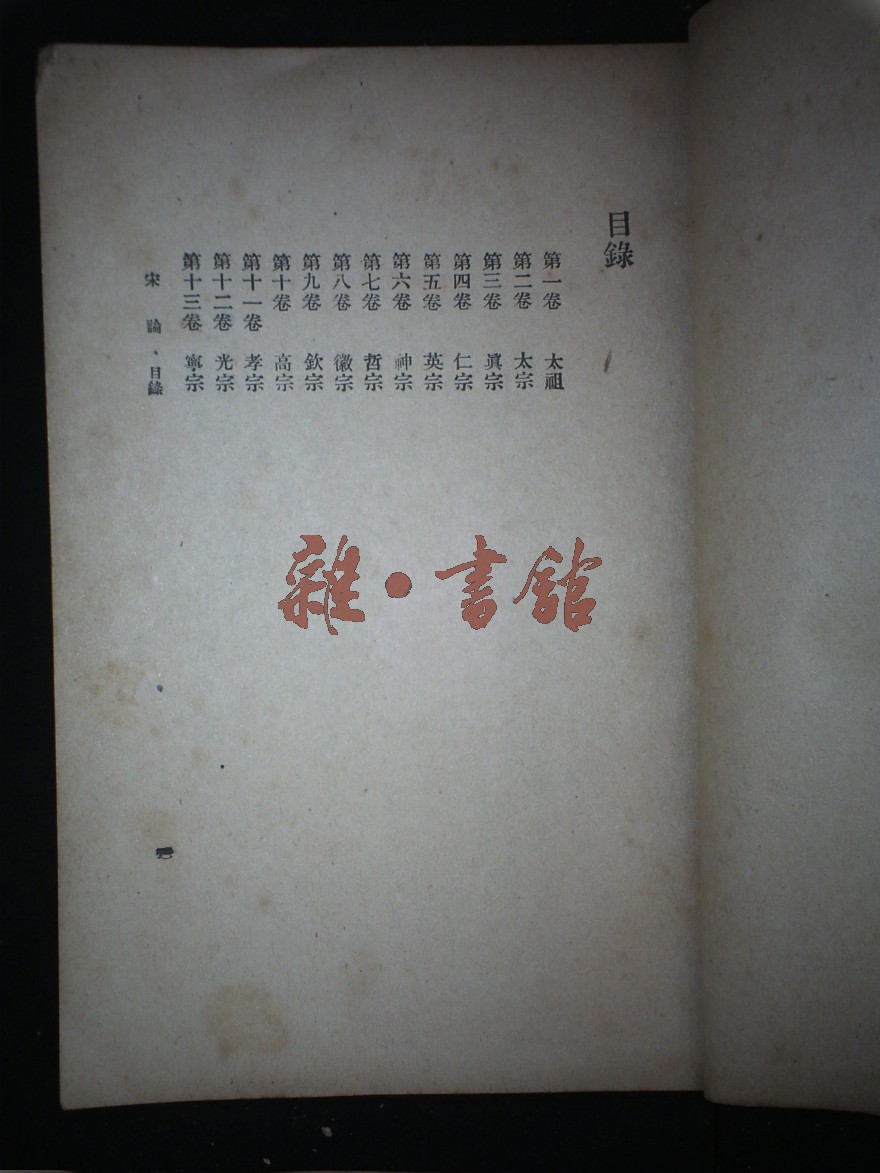 目錄
第一卷 太祖
第二卷 太宗
第三卷 眞宗
第四卷 仁宗
第五卷 英宗
第六卷 神宗
第七卷 哲宗
第八卷 徽宗
第九卷 欽宗
第十卷 高宗
第十一卷 孝宗
第十二卷 光宗
第十三卷 寧宗
宋 論・目錄
雜•書館